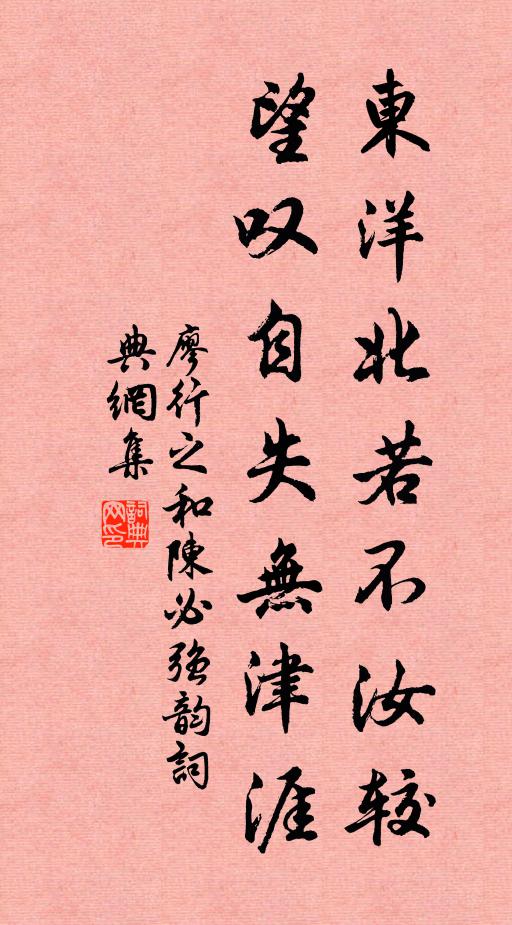 東洋北若不汝較
望叹自失無津涯
廖行之和陳必强韵詞
典網集
詞典
网印